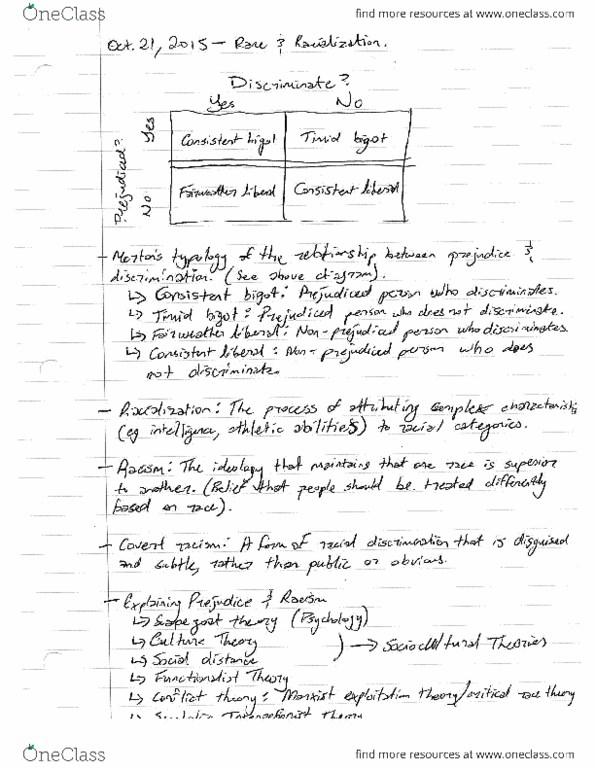 OneClass
find more resources at www.oneclass.com
Oct. 21, 2015 - Race & Racialization.
Discriminate?
Yes No
Prejudiced?
Yes
Consistent bigot Timid bigot
No
Fairweather liberal Consistent liberal
- Merton's typology of the relationship between prejudice &
discrimination. (See above diagram).
↳ Consistent bigot: Prejudiced person who discriminates.
↳ Timid bigot: Prejudiced person who does not discriminate.
↳ Fairweather liberal: Non-prejudiced person who discriminates
↳ Consistent liberal: Non-prejudiced person who does
not discriminate.
- Racialization: The process of attributing complex characteristics
(eg intelligence, athletic abilities) to racial categories.
- Racism: The ideology that maintains that one race is superior
to another. (Belief that people should be treated differently
based on race).
- Covert racism: A form of racial discrimination that is disguised
and subtle, rather than public or obvious.
- Explaining Prejudice & Racism
↳ Scapegoat theory (Psychology)
↳ Culture Theory
) → Sociocultural Theories
↳ Social distance
↳ Functionalist Theory
↳ Conflict theory: Marxist exploitation theory/critical race theory
↳ Symbolic Interactionist Theory
OneClass
find more resources at www.oneclass.com